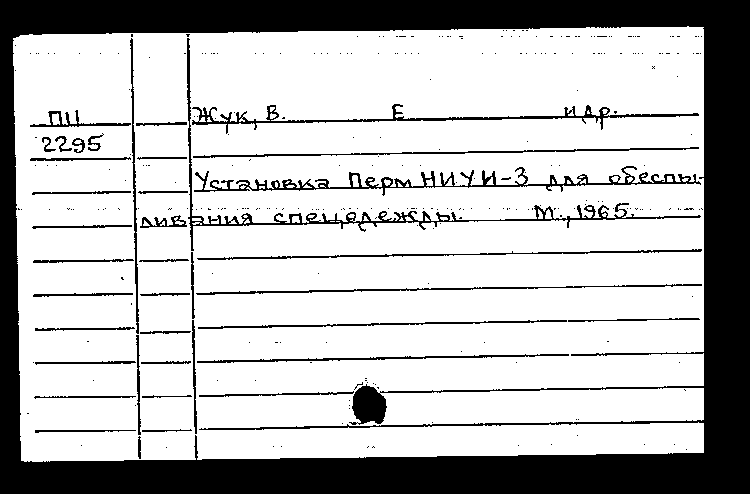 П11 Жук, В. Е и др.
2295
Установка ПермНИУИ-3 для обеспы-
ливания спецодежды. М., 1965.